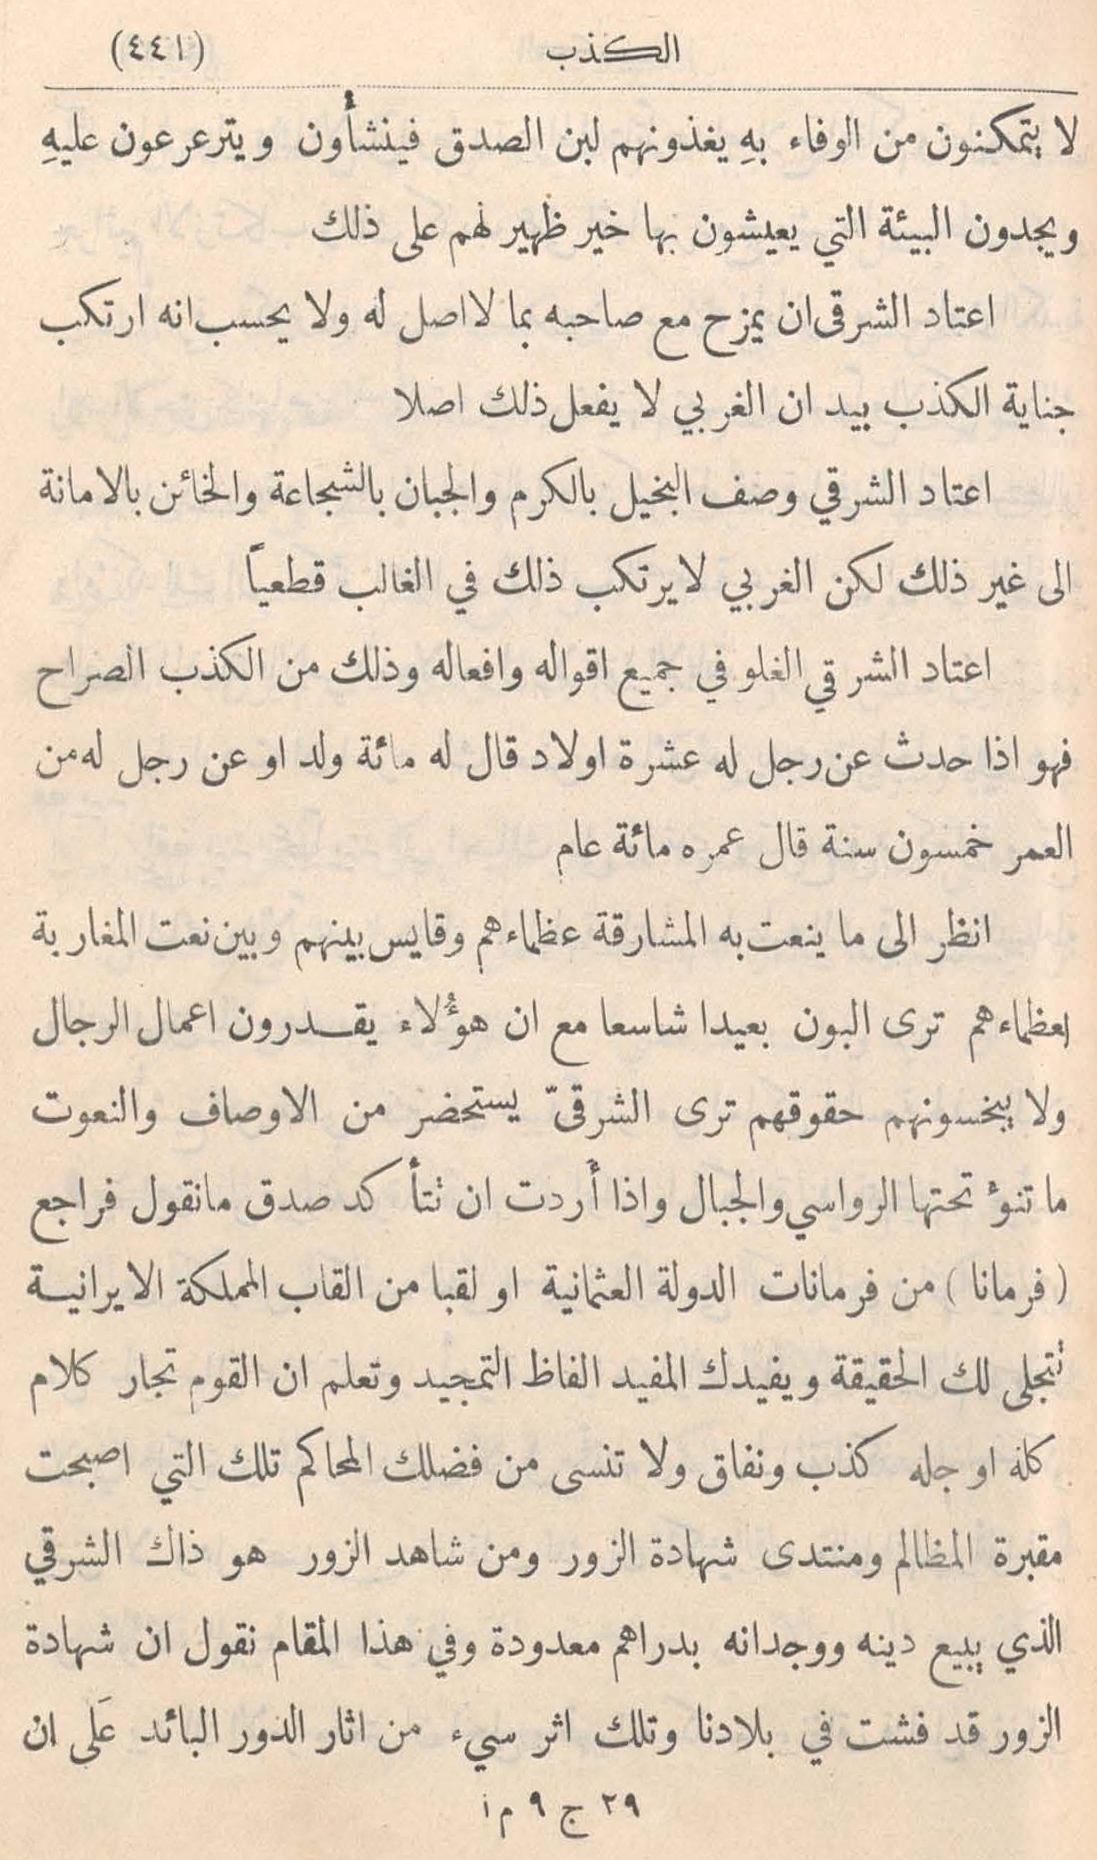 الكذب (٤٤١)
لا يتمكنون من الوفاء بهِ يغذونهم لبن الصدق فينشأون ويترعرعون عليهِ
ويجدون البيئة التي يعيشون بها خير ظهير لهم على ذلك
اعتاد الشرقى ان يمزح مع صاحبه بما لا اصل له ولا يحسب انه ارتكب
جناية الكذب بيد ان الغربي لا يفعل ذلك اصلا
اعتاد الشرقي وصف البخيل بالكرم والجبان بالشجاعة والخائن بالامانة
الى غير ذلك لكن الغربي لا يرتكب ذلك في الغالب قطعياً
اعتاد الشرقي الغلو في جميع اقواله وافعاله وذلك من الكذب الصراح
فهو اذا حدث عن رجل له عشرة اولاد قال له مائة ولد او عن رجل له من
العمر خمسون سنة قال عمره مائة عام
انظر الى ما ينعت به المشارقة عظماءهم وقايس بينهم وبين نعت المغاربة
لعظماءهم ترى البون بعيدا شاسعا مع ان هؤلاء يقدرون اعمال الرجال
ولا يبخسونهم حقوقهم ترى الشرقىّ يستحضر من الاوصاف والنعوت
ما تنوء تحتها الرواسي والجبال واذا أردت ان تتأكد صدق مانقول فراجع
(فرمانا) من فرمانات الدولة العثمانية او لقبا من القاب المملكة الايرانية
تتجلى لك الحقيقة ويفيدك المفيد الفاظ التمجيد وتعلم ان القوم تجار كلام
كله او جله كذب ونفاق ولا تنسى من فضلك المحاكم تلك التي اصبحت
مقبرة المظالم ومنتدى شهادة الزور ومن شاهد الزور هو ذاك الشرقي
الذي يبيع دينه ووجدانه بدراهم معدودة وفي هذا المقام نقول ان شهادة
الزور قد فشت في بلادنا وتلك اثر سيء من اثار الدور البائد عَلى ان
٢٩ ج ٩ م ١